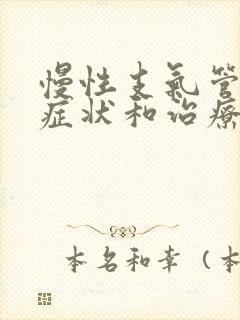 慢性支氣管
症状和治療
本名和幸（本